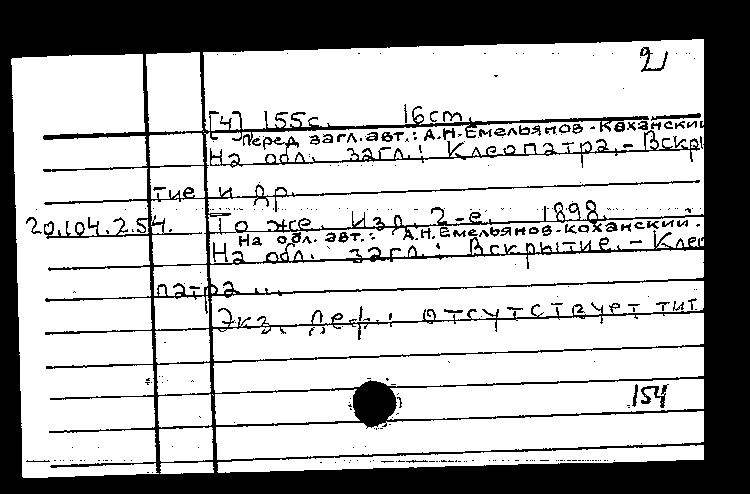 2
[4] 155с. 16cm.
Перед загл. авт.: А.Н. Емельянов-Коханский
На обл. загл.: Клеопатра.- Вскры
тие и др.
20.104.2.54. То же. Изд. 2-е. 1898.
На обл. авт.: А.Н. Емельянов-Коханский.
На обл. загл.: Вскрытие.- Клео
патра ...
Экз. деф.: отсутствует тит.
154